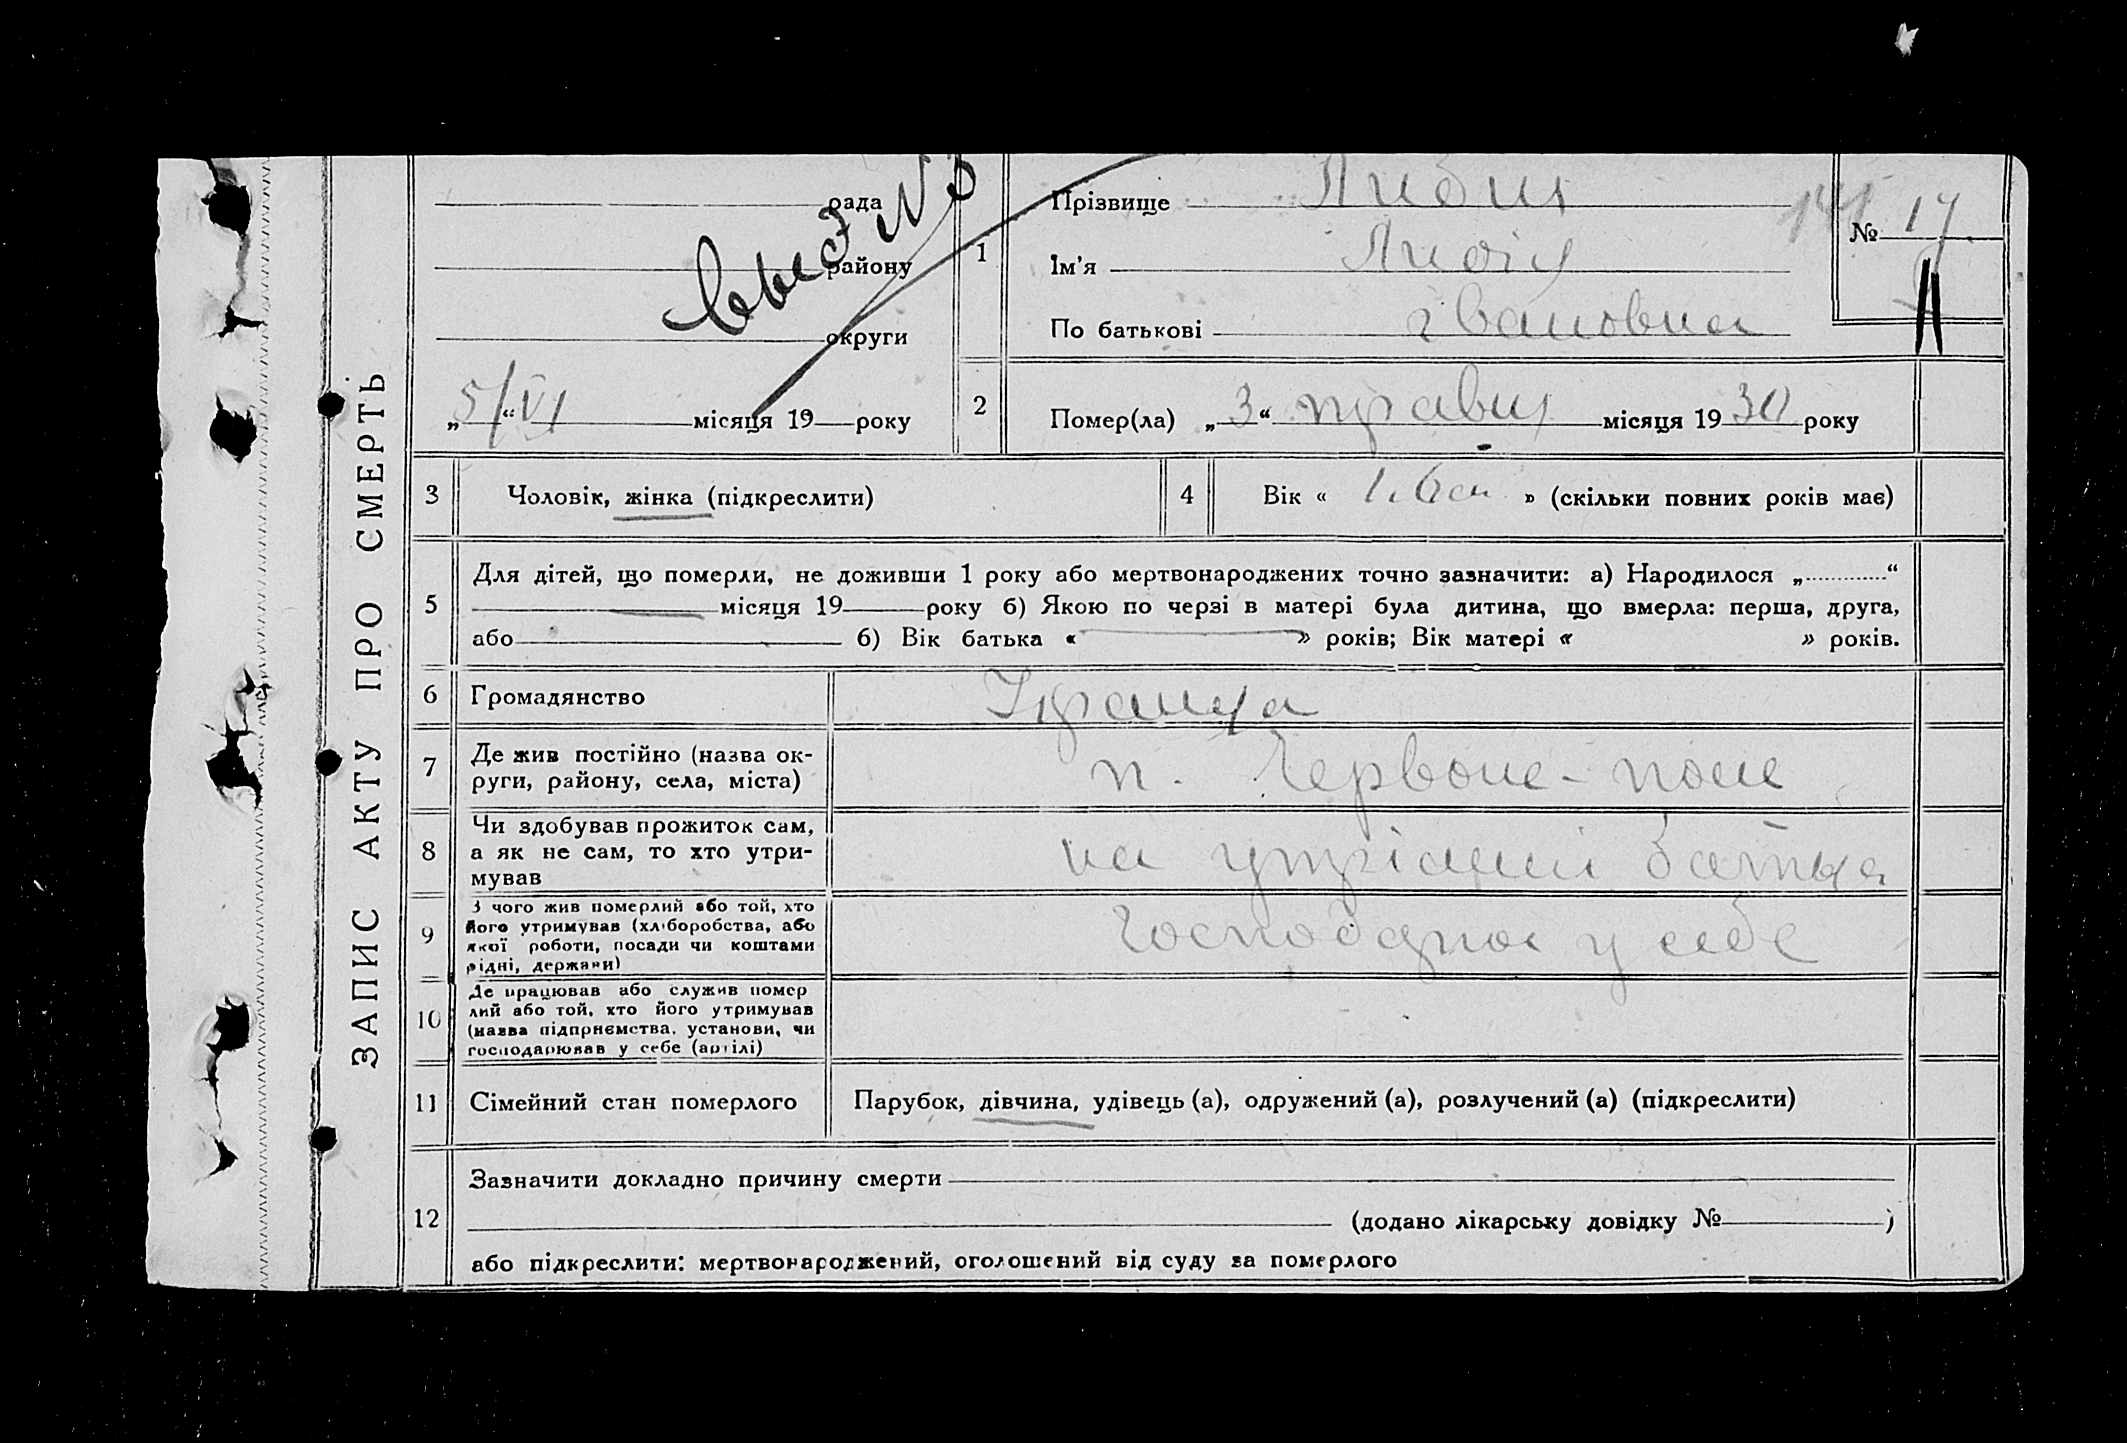 ЗАПИС АКТУ ПРО СМЕРТЬ
рада
району
округи
„5/“VI місяця 19 року
№ 3
1
Прізвище
Ім'я Лидія
По батькові івановна
№ 17
2
Помер(ла) „3“ травня місяця 1930 року
3 Чоловік, жінка (підкреслити)
4 Вік « » (скільки повних років має)
5 Для дітей, що померли, не доживши 1 року або мертвонароджених точно зазначити: а) Народилося „ “
місяця 19 року б) Якою по черзі в матері була дитина, що вмерла: перша, друга,
або б) Вік батька « » років; Вік матері « » років.
6 Громадянство Українка
7 Де жив постійно (назва ок-
руги, району, села, міста) п. Червоне-поле
8 Чи здобував прожиток сам,
а як не сам, то хто утри-
мував на утріманні батька
9 З чого жив померлий або той, хто
його утримував (хліборобства, або
якої роботи, посади чи коштами
рідні, держави) у себе
10 Де працював або служив помер
лий або той, хто його утримував
(назва підприємства, установи, чи
господарював у себе (артілі)
11 Сімейний стан померлого Парубок, дівчина, удівець (а), одружений (а), розлучений (а) (підкреслити)
12 Зазначити докладно причину смерти
(додано лікарську довідку № )
або підкреслити: мертвонароджений, оголошений від суду за померлого